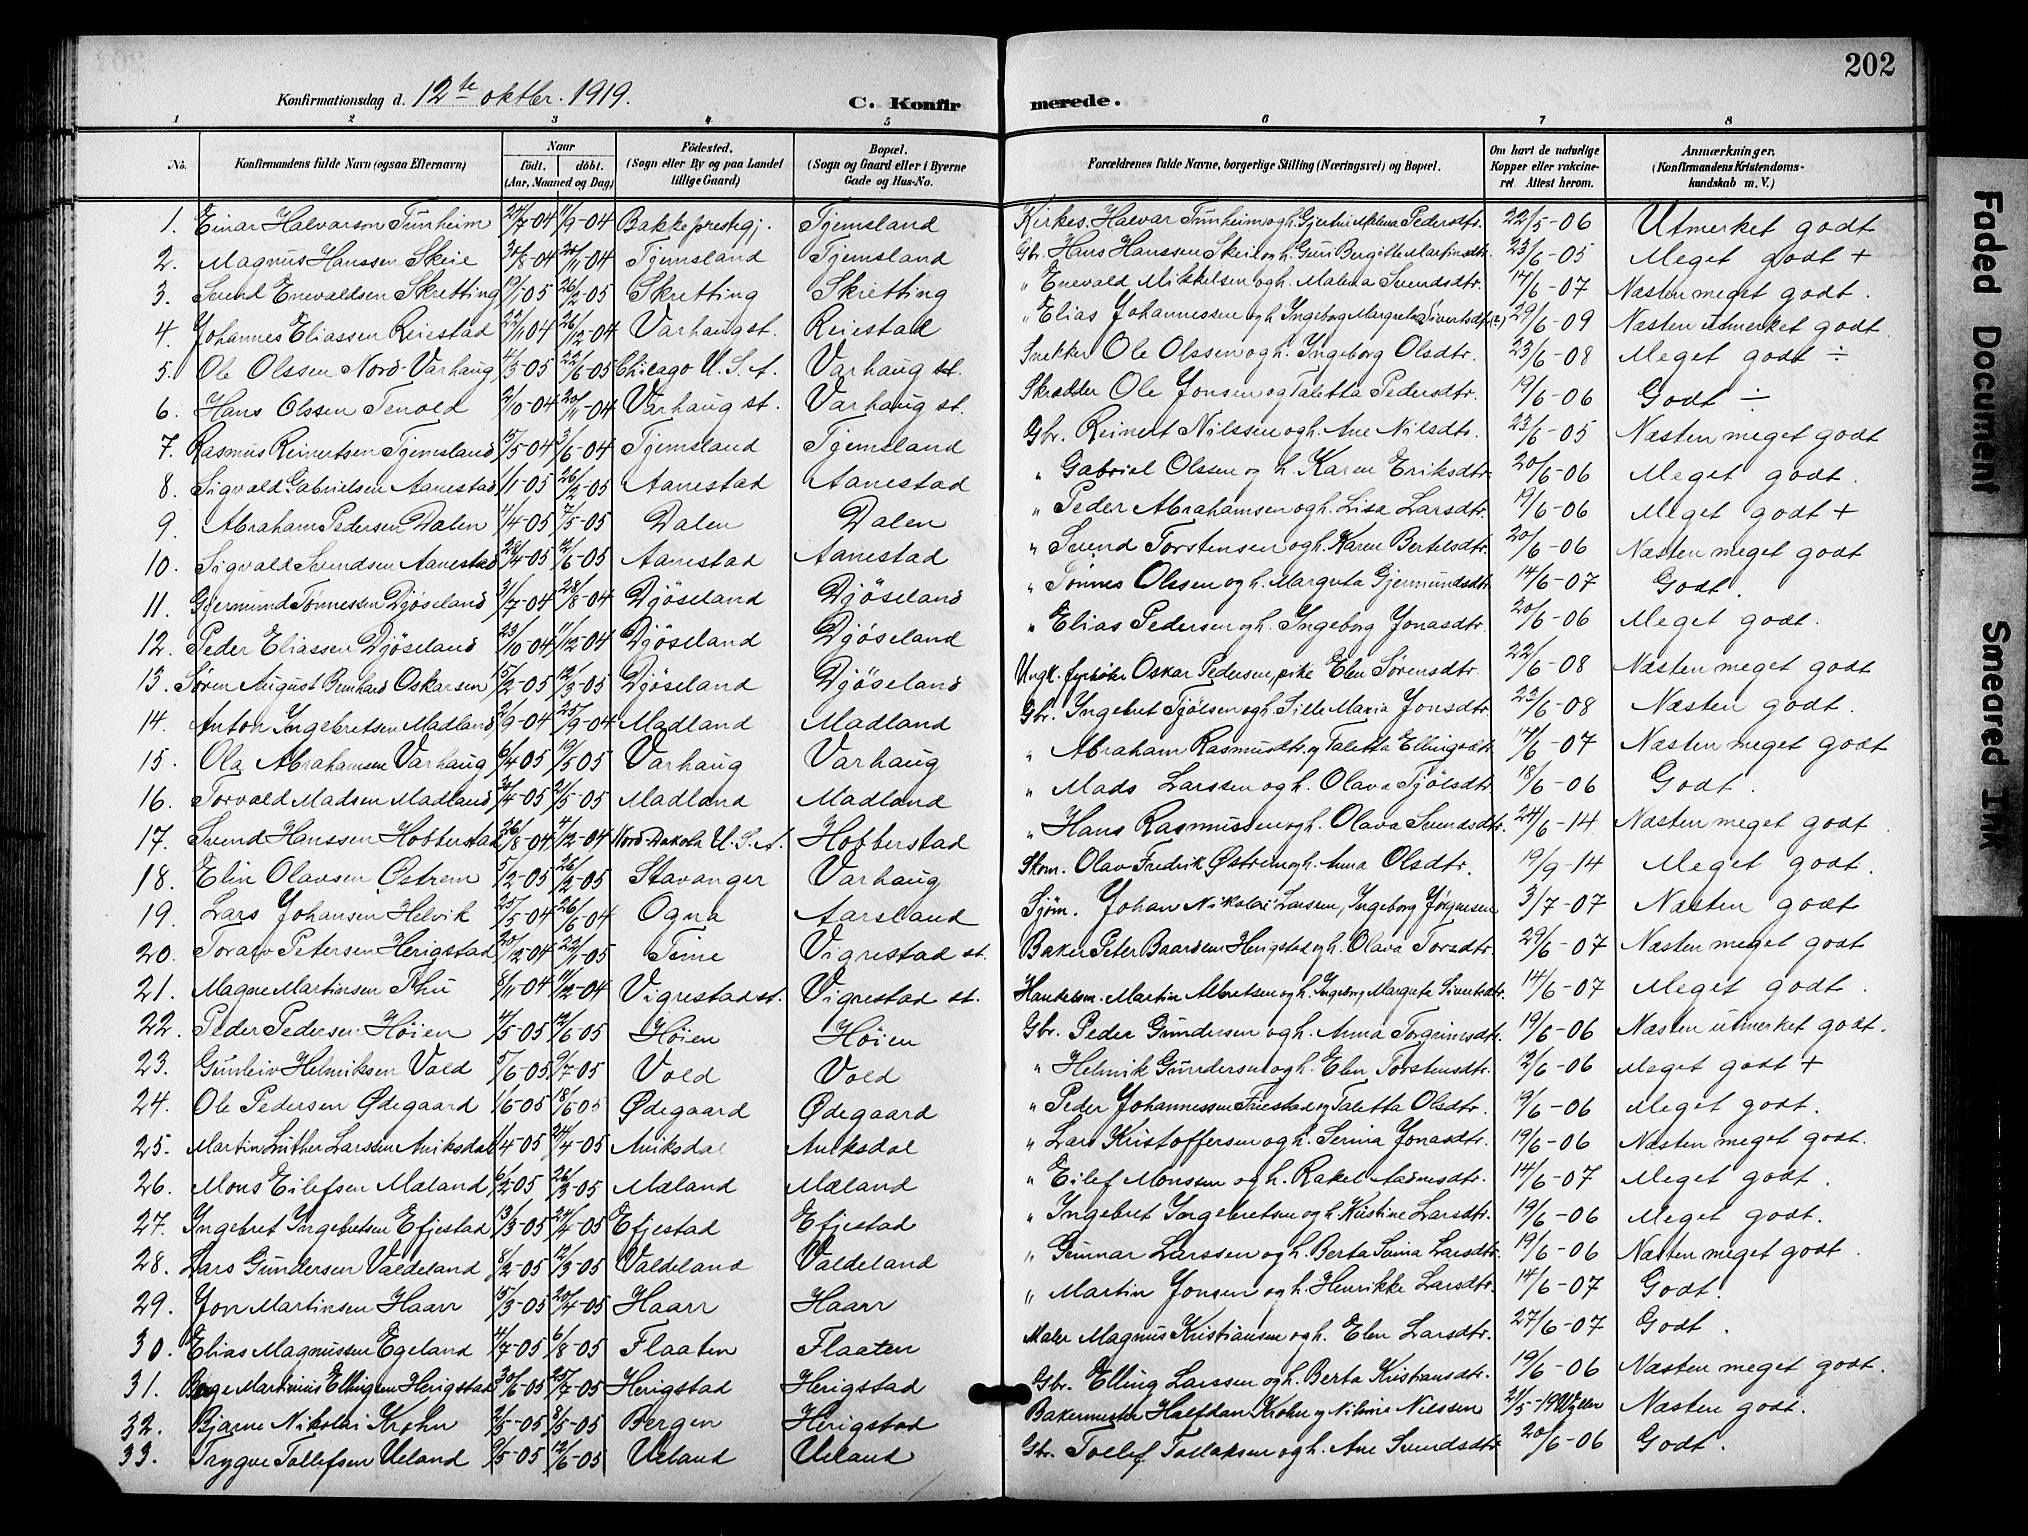 202
Konfirmationsdag d. 12te oktbr. 1919.
C. Konfirmerede.
1 2 3 4 5 6 7 8
No. | Konfirmandens fulde Navn (ogsaa Efternavn) | Naar født. døbt. (Aar, Maaned og Dag) | Fødested. (Sogn eller By og paa Landet tillige Gaard) | Bopæl. (Sogn og Gaard eller i Byerne Gade og Hus-No. | Forældrenes fulde Navne, borgerlige Stilling (Næringsvei) og Bopæl. | Om havt de naturlige Kopper eller vakcineret. Attest herom. | Anmærkninger. (Konfirmandens Kristendomskundskab m. V.)
1. Einar Halvarson Tunheim 24/7-04 11/9-04 Bakke prestegj. Tjemsland Kirkes. Halvar Tunheim og h. Gjertine Malena Pedersdtr. 22/5-06 Utmerket godt
2. Magnus Hanssen Skeie 30/8-04 20/11-04 Tjemsland Tjemsland Gbr. Hans Hanssen Skeie og h. Guri Bergitte Martinsdtr. 23/6-05 Meget godt +
3. Svend Enevaldsen Skretting 19/1-05 26/2-05 Skretting Skretting " Enevald Mikkelsen og h. Malena Svendsdtr. 14/6-07 Næsten meget godt.
4. Johannes Eliassen Reiestad 22/11-04 26/12-04 Varhaug st. Reiestad " Elias Johannessen og h. Ingeborg Margreta Sivertsdtr. (?) 29/6-09 Næsten utmerket godt
5. Ole Olssen Nord-Varhaug 4/3-05 22/6-05 Chicago U. S. A. Varhaug st. Snekker Ole Olssen og h. Ingeborg Olsdtr. 23/6-08 Meget godt ÷
6. Hans Olssen Tenold 2/10-04 20/11-04 Varhaug st. Varhaug st. Skrædder Ole Jonsen og Taletta Pedersdtr. 19/6-06 Godt ÷
7. Rasmus Reinertsen Tjemsland 15/5-04 3/6-04 Tjemsland Tjemsland Gbr. Reinert Nilssen og h. Ane Nilsdtr. 23/6-05 Næsten meget godt
8. Sigvald Gabrielsen Aanestad 11/1-05 26/2-05 Aanestad Aanestad " Gabriel Olssen og h. Karen Eriksdtr. 20/6-06 Meget godt.
9. Abraham Pedersen Dalen 4/4-05 7/5-05 Dalen Dalen " Peder Abrahamsen og h. Lisa Larsdtr. 19/6-06 Meget godt +
10. Sigvald Svendsen Aanestad 28/4-05 12/6-05 Aanestad Aanestad " Svend Torstensen og h. Karen Bertelsdtr. 20/6-06 Næsten meget godt
11. Gjermund Tønnessen Djøseland 31/7-04 28/8-04 Djøseland Djøseland " Tønnes Olssen og h. Margreta Gjermundsdtr. 14/6-07 Godt.
12. Peder Eliassen Djøseland 23/10-04 11/12-04 Djøseland Djøseland " Elias Pedersen og h. Ingeborg Jonasdtr. 20/6-06 Meget godt.
13. Søren August Bernhard Oskarsen 15/2-05 12/3-05 Djøseland Djøseland Ungk. fyrbøter Oskar Pedersen, pike Elen Sørensdtr. 22/6-08 Næsten meget godt
14. Anton Ingebretsen Madland 2/9-04 25/9-04 Madland Madland Gbr. Ingebret Tjølsen og h. Sille Maria Jonsdtr. 23/6-08 Næsten godt.
15. Ola Abrahamsen Varhaug 6/4 05 19/5 05 Varhaug Varhaug " Abraham Rasmusdtr. og Taletta Ellingsdtr. 14/6-07 Næsten meget godt
16. Torvald Madsen Madland /4-05 21/5-05 Madland Madland " Mads Larssen og h. Olava Tjølsdtr. 18/6-06 Godt.
17. Svend Hanssen Hobberstad 26/8-04 4/12-04 Nord-Dakota U. S. A. Hobberstad " Hans Rasmussen og h. Olava Svendsdtr. 24/6-14 Næsten meget godt.
18. Elin Olavsen Østrem 5/2-05 26/2-05 Stavanger Varhaug Skom. Olav Fredrik Østrem og h. Anna Olsdtr. 19/9-14 Meget godt.
19. Lars Johansen Helvik 25/5-04 26/6-04 Ogna Aarsland Sjøm. Johan Nikolai Larssen, Ingeborg Jørgensen 3/7-07 Næsten godt
20. Toralv Petersen Herigstad 20/12-04 22/1-05 Time Vigrestad st. Baker Peter Baardsen Herigstad og h. Olava Torsdtr. 29/6-07 Næsten meget godt
21. Magne Martinsen Thu 8/11-04 11/12-04 Vigrestad st. Vigrestad st. Handelsm. Martin Albretsen og h. Ingeborg Margreta Sivertsdtr. 14/6-07 Meget godt.
22. Peder Pedersen Høien 4/5-05 12/6 05 Høien Høien Gbr. Peder Gundersen og h. Anna Torgrimsdtr. 19/6-06 Næsten utmerket godt.
23. Gunleiv Helmiksen Vold 5/6-05 9/7-05 Vold Vold " Helmik Gundersen og h. Elen Torstensdtr. 12/6-06 Meget godt +
24. Ole Pedersen Ødegaard 1/6-05 18/6 05 Ødegaard Ødegaard " Peder Johannessen Friestad og Taletta Olsdtr. 19/6-06 Meget godt.
25. Martin Luther Larssen Aniksdal 1/4-05 24/4-05 Aniksdal Aniksdal " Lars Kristoffersen og h. Serina Jonasdtr. 19/6-06 Næsten meget godt.
26. Mons Eilefsen Mæland 6/2-05 26/3-05 Mæland Mæland " Eilef Monssen og h. Rakel Aadnesdtr. 14/6-07 Meget godt.
27. Ingebret Ingebretsen Efjestad 13/3-05 24/4-05 Efjestad Efjestad " Ingebret Ingebretsen og h. Kristine Larsdtr. 19/6-06 Meget godt.
28. Lars Gundersen Valdeland 8/2-05 12/3-05 Valdeland Valdeland " Gunnar Larssen og h. Berta Serina Larsdtr. 19/6-06 Næsten meget godt.
29. Jon Martinsen Haarr 15/3-05 20/4-05 Haarr Haarr " Martin Jonsen og h. Henrikke Larsdtr. 14/6-07 Godt.
30. Elias Magnussen Egeland 4/7-05 6/8-05 Flaaten Flaaten Maler Magnus Kristiansen og h. Elen Larsdtr. 27/6-07 Godt.
31. Martinius Ellingsen Herigstad 30/6-05 25/7-05 Herigstad Herigstad Gbr. Elling Larssen og h. Berta Kristiansdtr. 19/6-06 Næsten meget godt.
32. Bjarne Nikolai Krohn 2/5-05 8/5-05 Bergen Herigstad Bakermester Halfdan Krohn og Nilsine Nilssen 21/5-19 Næsten godt.
33. Trygve Tollefsen Ueland 9/5-05 12/6-05 Ueland Ueland Gbr. Tollef Tollaksen og h. Ane Svendsdtr. 20/6-06 Godt.
Faded Document
Smeared Ink